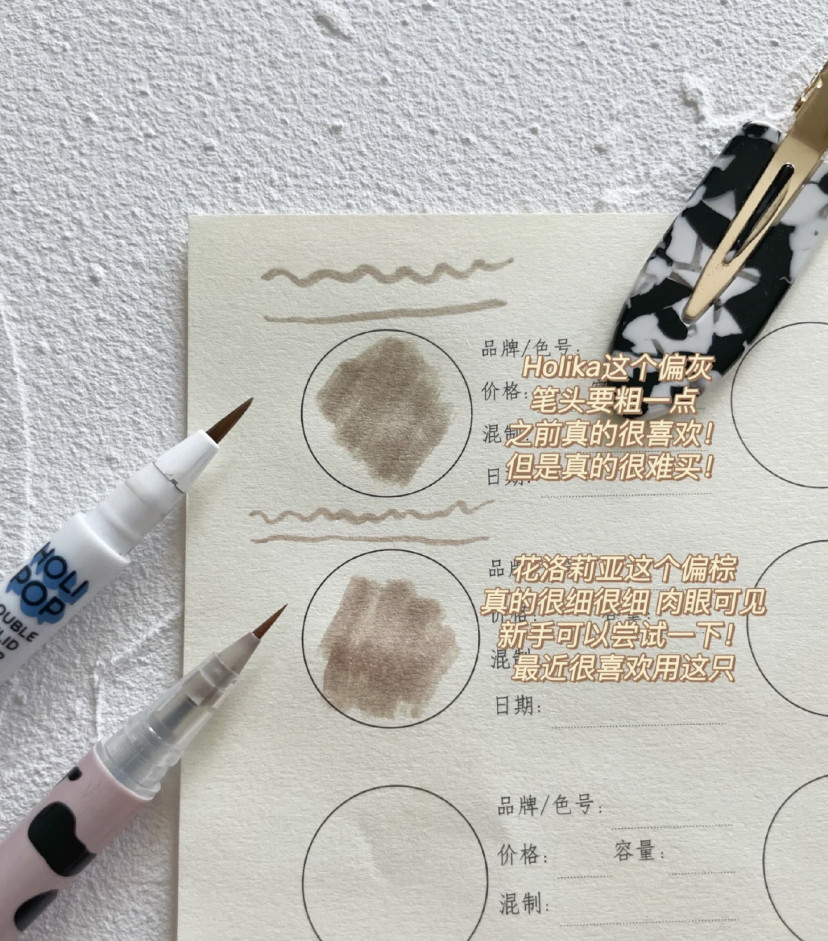 品牌/色号:
Holika这个偏灰
价格:
笔头要粗一点
混制
之前真的很喜欢!
日期:
但是真的很难买!
HOLI
POP
OUBLE
LID
品牌
花洛莉亚这个偏棕
价格: 容量:
真的很细很细 肉眼可见
混制
新手可以尝试一下!
最近很喜欢用这只
日期:
品牌/色号:
价格: 容量:
混制: